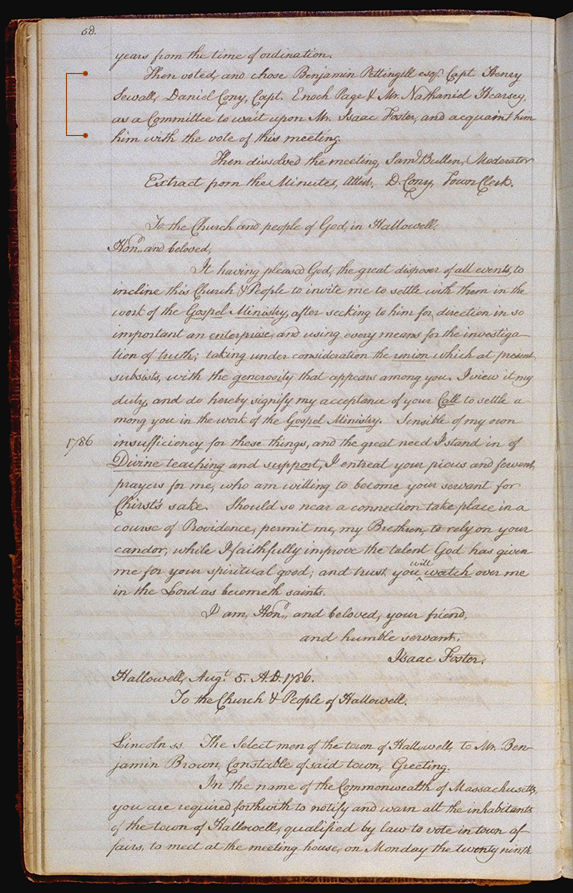 58.
years from the time of ordination.
Then voted, and chose Benjamin Pettingill esqr. Capt. Henry
Sewall, Daniel Cony, Capt. Enoch Page & Mr. Nathaniel Hearsey,
as a Committee to wait upon Mr. Isaac Foster, and acquaint him
him with the vote of this meeting.
Then dissolved the meeting, Saml. Bullen, Moderator
Extract from the Minutes, Attest, D. Cony, Town Clerk.
To the Church and people of God, in Hallowell,
Hond. and beloved,
It having pleased God, the great disposer of all events, to
incline this Church & People to invite me to settle with them in the
work of the Gospel Ministry, after seeking to him for direction in so
important an enterprise, and using every means for the investiga-
tion of truth; taking under consideration the union which at present
subsists, with the generosity that appears among you, I view it my
duty, and do hereby signify my acceptance of your Call to settle a
mong you in the work of the Gospel Ministry. Sensible of my own
1786 insufficiency for these things, and the great need I stand in of
Divine teaching and support, I entreat your pious and fervent
prayers for me, who am willing to become your servant for
Chirst's sake. Should so near a connection take place in a
course of Providence, permit me, my Brethren, to rely on your
candor, while I faithfully improve the talent God has given
me for your spiritual good; and trust you will watch over me
in the Lord as becometh saints.
I am, Hond. and beloved, your friend,
and humble servant,
Isaac Foster.
Hallowell, Augt. 5. AD. 1786.
To the Church & People of Hallowell.
Lincoln ss. The Select men of the town of Hallowell, to Mr. Ben-
jamin Brown, Constable of said town, Greeting.
In the name of the Commonwealth of Massachusetts,
you are required forthwith to notify and warn all the inhabitants
of the town of Hallowell, qualified by law to vote in town af
fairs, to meet at the meeting house, on Monday the twenty ninth